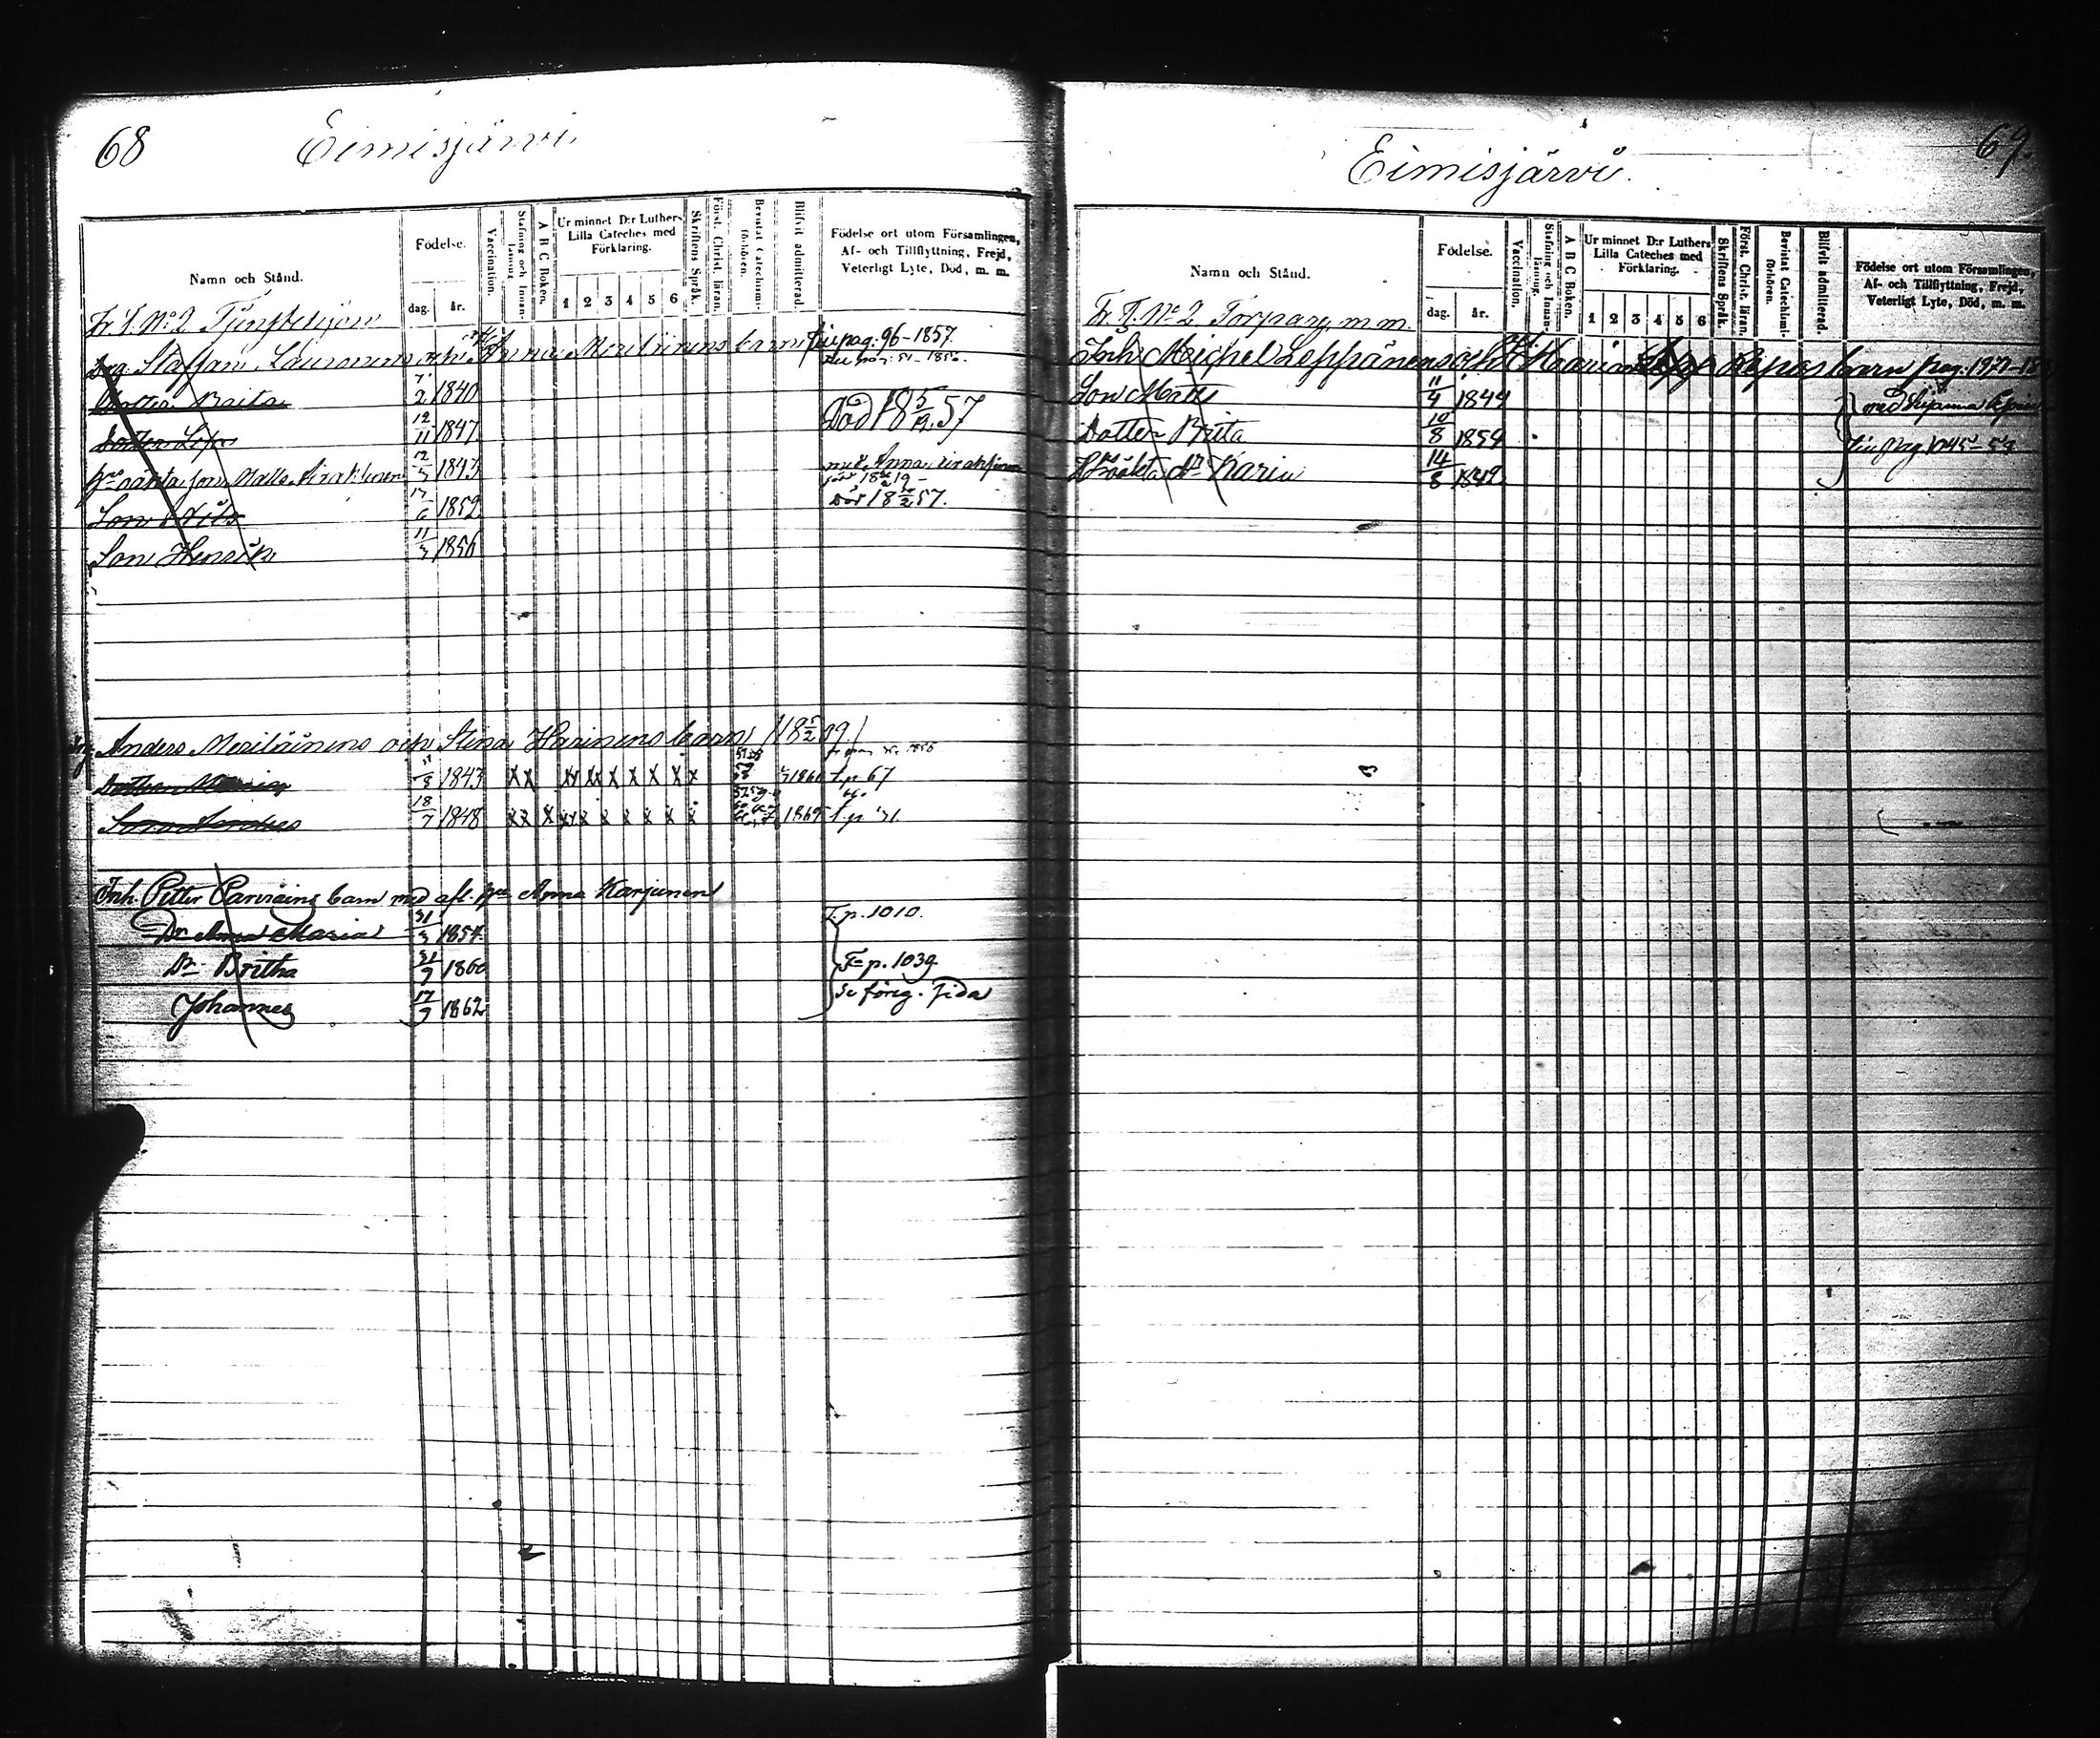 68
Eimisjärvi
Namn och Stånd.
Födelse.
dag. år.
Vaccination.
Stafning och Innanläsning.
A B C Boken.
Ur minnet D:r Luthers Lilla Cateches med Förklaring.
1 2 3 4 5 6
Skriftens Språk.
Först. Christ. läran.
Bevistat Catechismi-förhören.
Blifvit admitterad.
Födelse ort utom Församlingen, Af- och Tillflyttning, Frejd, Veterligt Lyte, Död, m. m.
Fr. T. No 2
Staffan Lauronens och Anna Meriläinens barn pag: 96-1857.
Dotter Brita 2 1840
Dotter Lisa 12/11 1847 Död 18 5/12 57
oäkta son 12/5 1843 med Anna
Son Nils 17/6 1852 Död 18 5/2 57.
Son Henrik 11/3 1856
Anders Meriläinens och Stina Harinens barn
Dottern Maria 1843 x x x x x x x x x x 1860 T. p. 67
Son Anders 18/7 1848 x x x x x x x x x x 1865 T. p. 71
Inh. Petter Parviains barn med afl. Anna Karjunen
Dr Anna Maria 31/3 1854 T. p. 1010.
Dr Britha 31/7 1860 F= p. 1039
Johannes 17/7 1862 Se föreg. sida
69.
Eimisjärvi.
Namn och Stånd.
Födelse.
dag. år.
Vaccination.
Stafning och Innanläsning.
A B C Boken.
Ur minnet D:r Luthers Lilla Cateches med Förklaring.
1 2 3 4 5 6
Skriftens Språk.
Först. Christ. läran.
Bevistat Catechismi-förhören.
Blifvit admitterad.
Födelse ort utom Församlingen, Af- och Tillflyttning, Frejd, Veterligt Lyte, Död, m. m.
Fr. T. No 2. Torpare, m. m.
Inh. Michel Leppänens och Kaarin Repos barn
Son Matts 11/4 1844
Dotter Brita 10/8 1854 pag 1045-59
oäkta dr Karin 14/8 1842